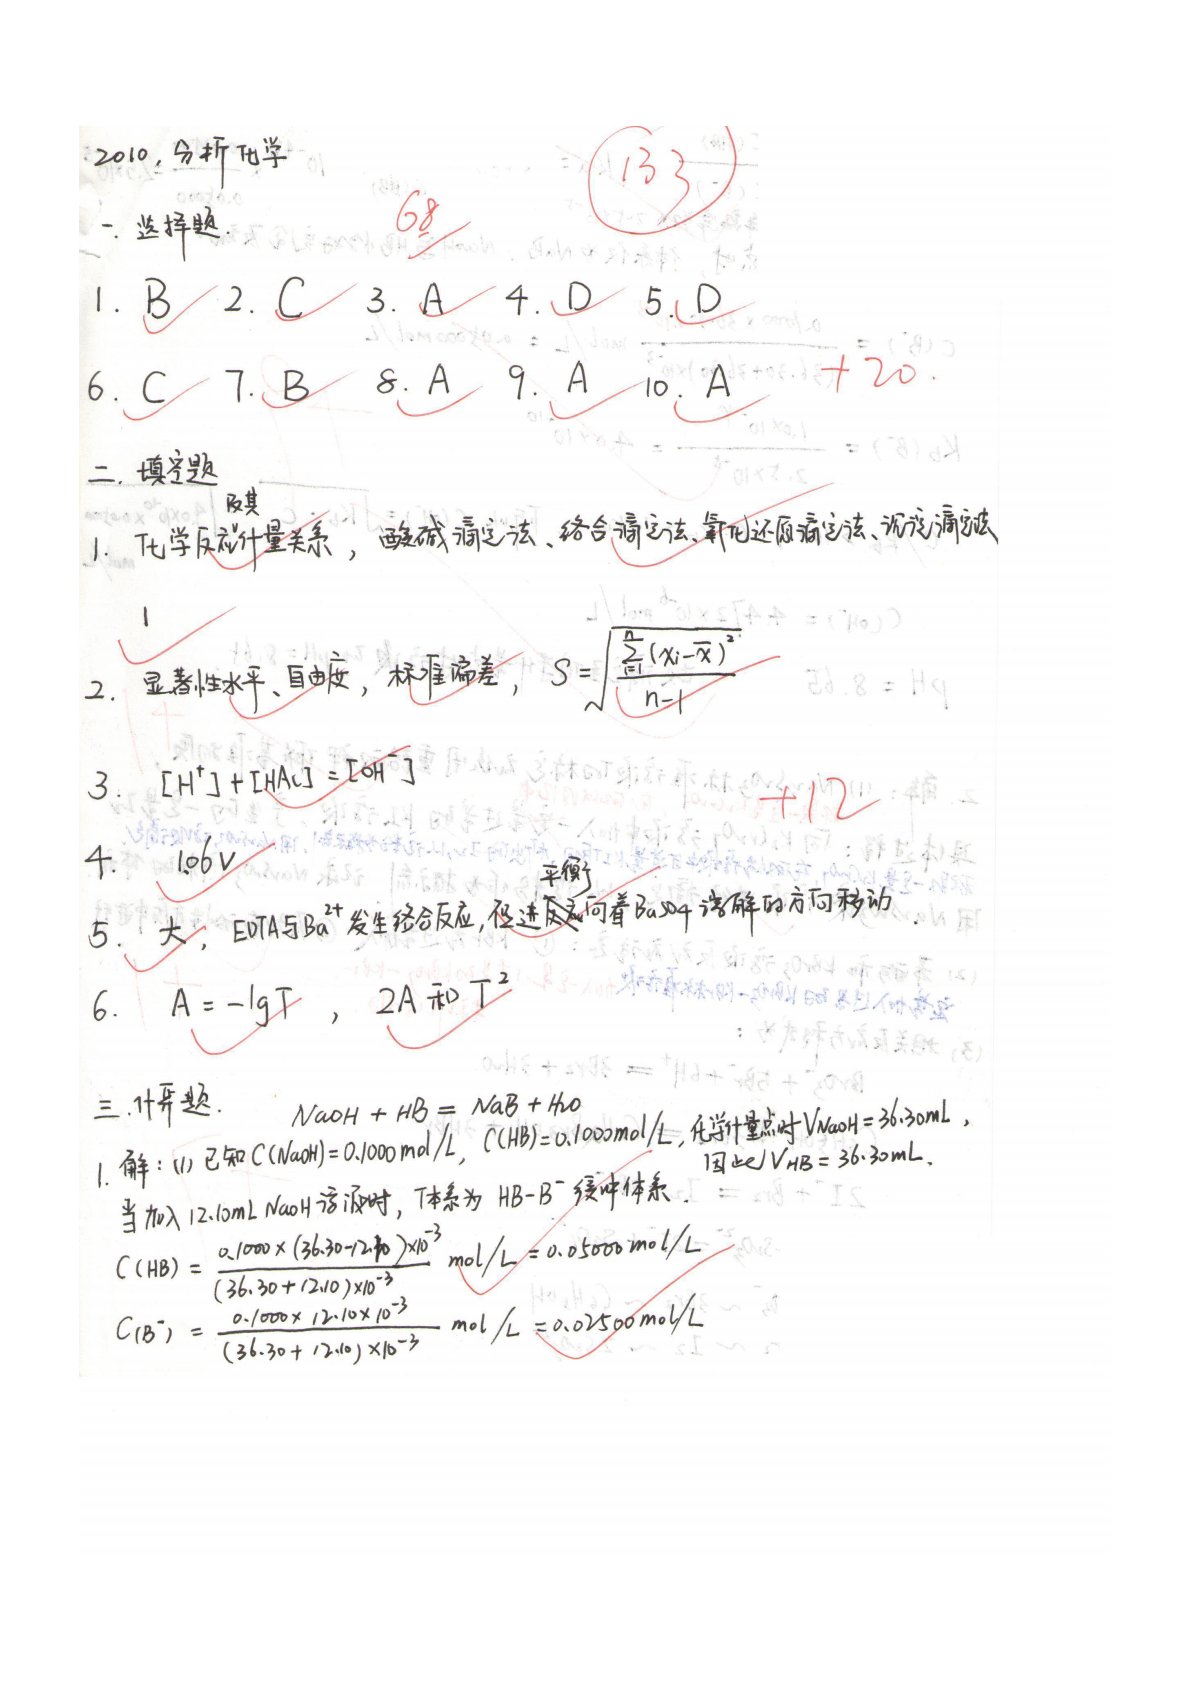 2010,分析化学
133
一. 选择题.
68
1. B 2. C 3. A 4. D 5. D
6. C 7. B 8. A 9. A 10. A
+20.
二. 填空题
及其
1. 化学反应计量关系, 酸碱滴定法、络合滴定法、氧化还原滴定法、沉淀滴定法
1
2. 显著性水平、自由度, 标准偏差, S=√(∑ⁿᵢ₌₁(xᵢ-x̄)²/(n-1))
3. [H⁺]+[HAc]=[OH⁻]
+12
4. 106V
平衡
5. 大, EDTA与Ba²⁺发生络合反应,促进反应向着BaSO4溶解的方向移动.
6. A=-lgT, 2A和T²
三.计算题. NaOH+HB=NaB+H2O
1. 解:(1)已知C(NaOH)=0.1000mol/L, C(HB)=0.1000mol/L,化学计量点时VNaOH=36.30mL,
因此VHB=36.30mL.
当加入12.10mL NaOH溶液时,体系为 HB-B⁻缓冲体系.
C(HB)= 0.1000×(36.30-12.10)×10⁻³/(36.30+12.10)×10⁻³ mol/L=0.05000mol/L
C(B⁻)= 0.1000×12.10×10⁻³/(36.30+12.10)×10⁻³ mol/L=0.02500mol/L